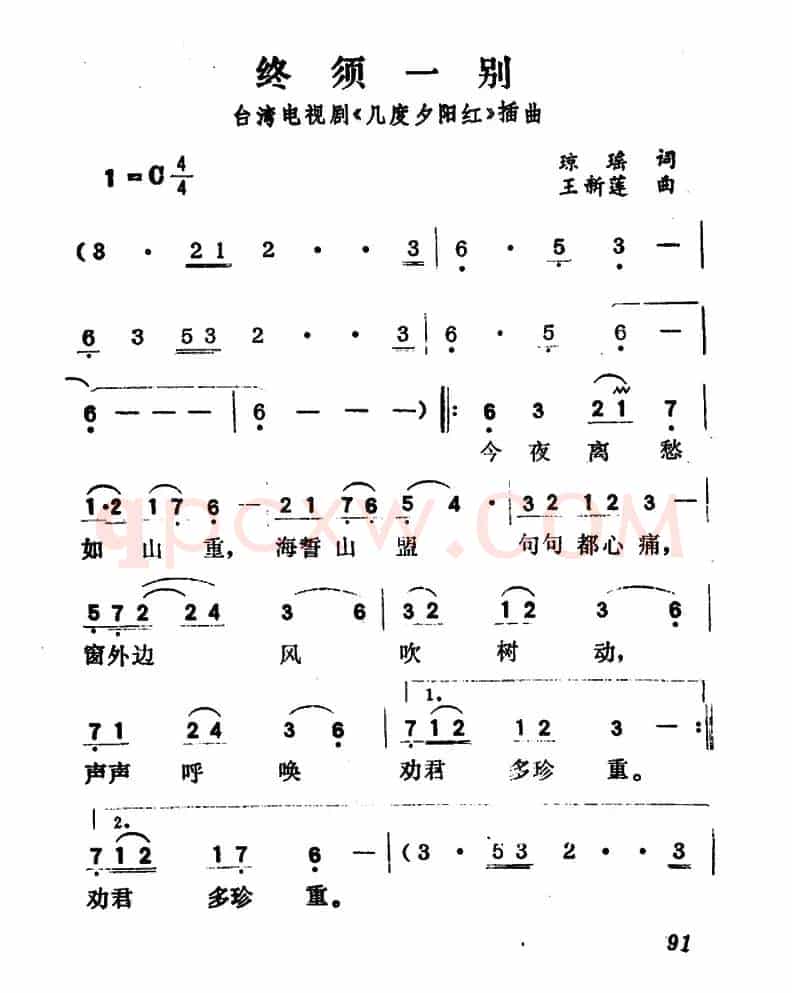 终须一别
台湾电视剧《几度夕阳红》插曲
1=C 4/4
琼瑶 词
王新莲 曲
(3 · 21 2 · · 3 | 6 · 5 3 — |
6 3 53 2 · · 3 | 6 · 5 6 — |
6 — — — | 6 — — —) ‖: 6 3 21 7 |
今夜离愁
1·2 17 6 — | 21 76 5 4 · | 32 12 3 — |
如山重，海誓山盟 句句都心痛，
572 24 3 6 | 32 12 3 6 |
窗外边 风 吹树动，
1.
71 24 3 6 | 712 12 3 — :‖
声声呼唤 劝君多珍重。
2.
712 17 6 — | (3 · 53 2 · · 3 |
劝君多珍重。
91
qpcxw.COM